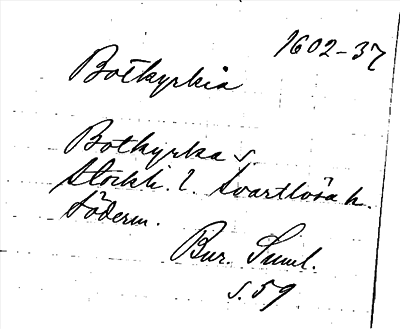 1602-37
Botkyrkia
Botkyrka s.
Stockh. l. Svartlösa h.
Söderm.
Bur. Suml.
s. 59